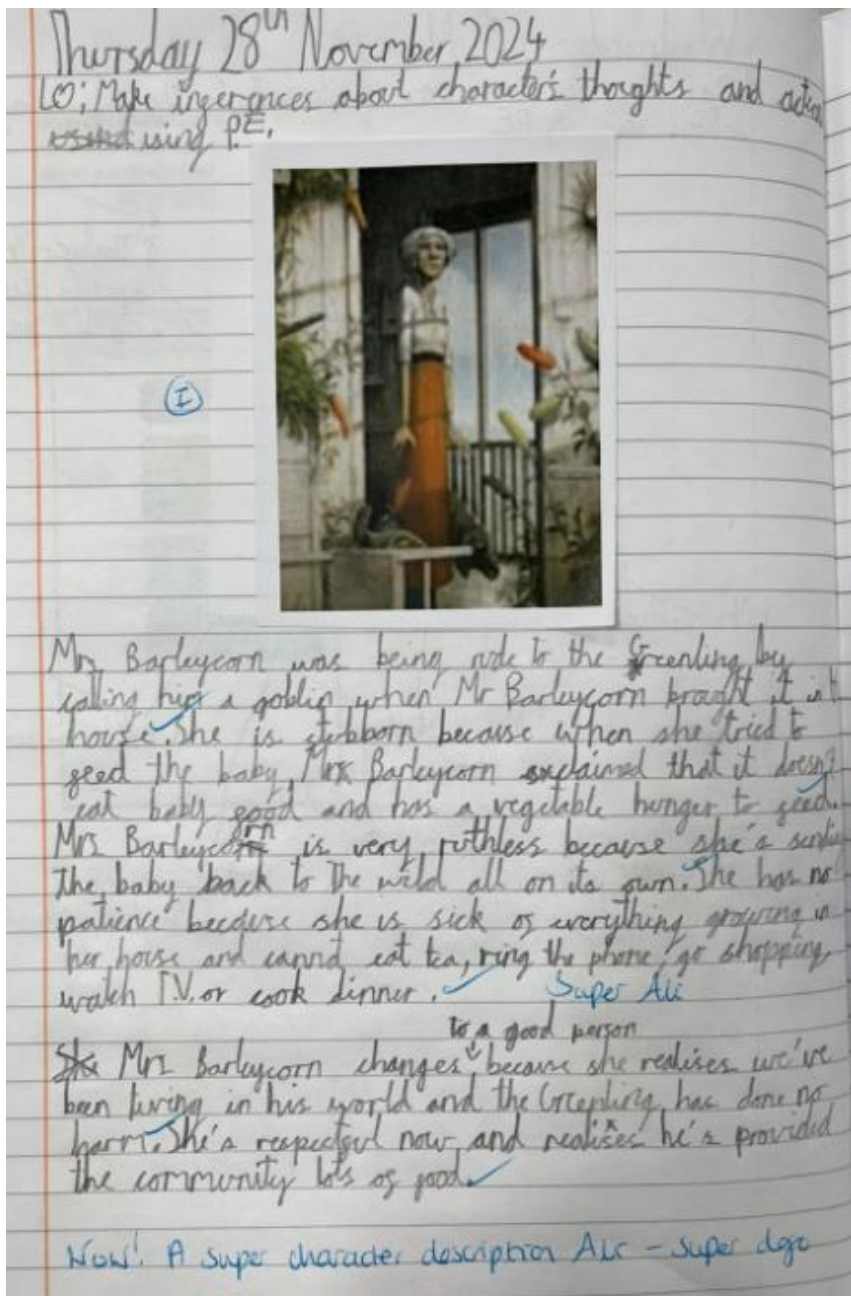 Thursday 28th November 2024
LO: Make inferences about character's thoughts and
using P.E.
I
Mrs Barleycorn was being rude to the Greenling by
calling him a goblin when Mr Barleycorn brought it
house. She is stubborn because when she tried to
feed the baby, Mr Barleycorn explained that it doesn't
eat baby food and has a vegetable hunger to feed.
Mrs Barleycorn is very ruthless because she's
the baby back to the wild all on its own. She has no
patience because she is sick of everything growing in
her house and cannot eat tea, ring the phone, go shopping,
watch T.V. or cook dinner.
Super Ali
to a good person
Mrs Barleycorn changes because she realises we've
been living in his world and the Greenling has done no
harm. She's respectful now and realises he's provided
the community lots of food.
Now! A super character description Ali - super